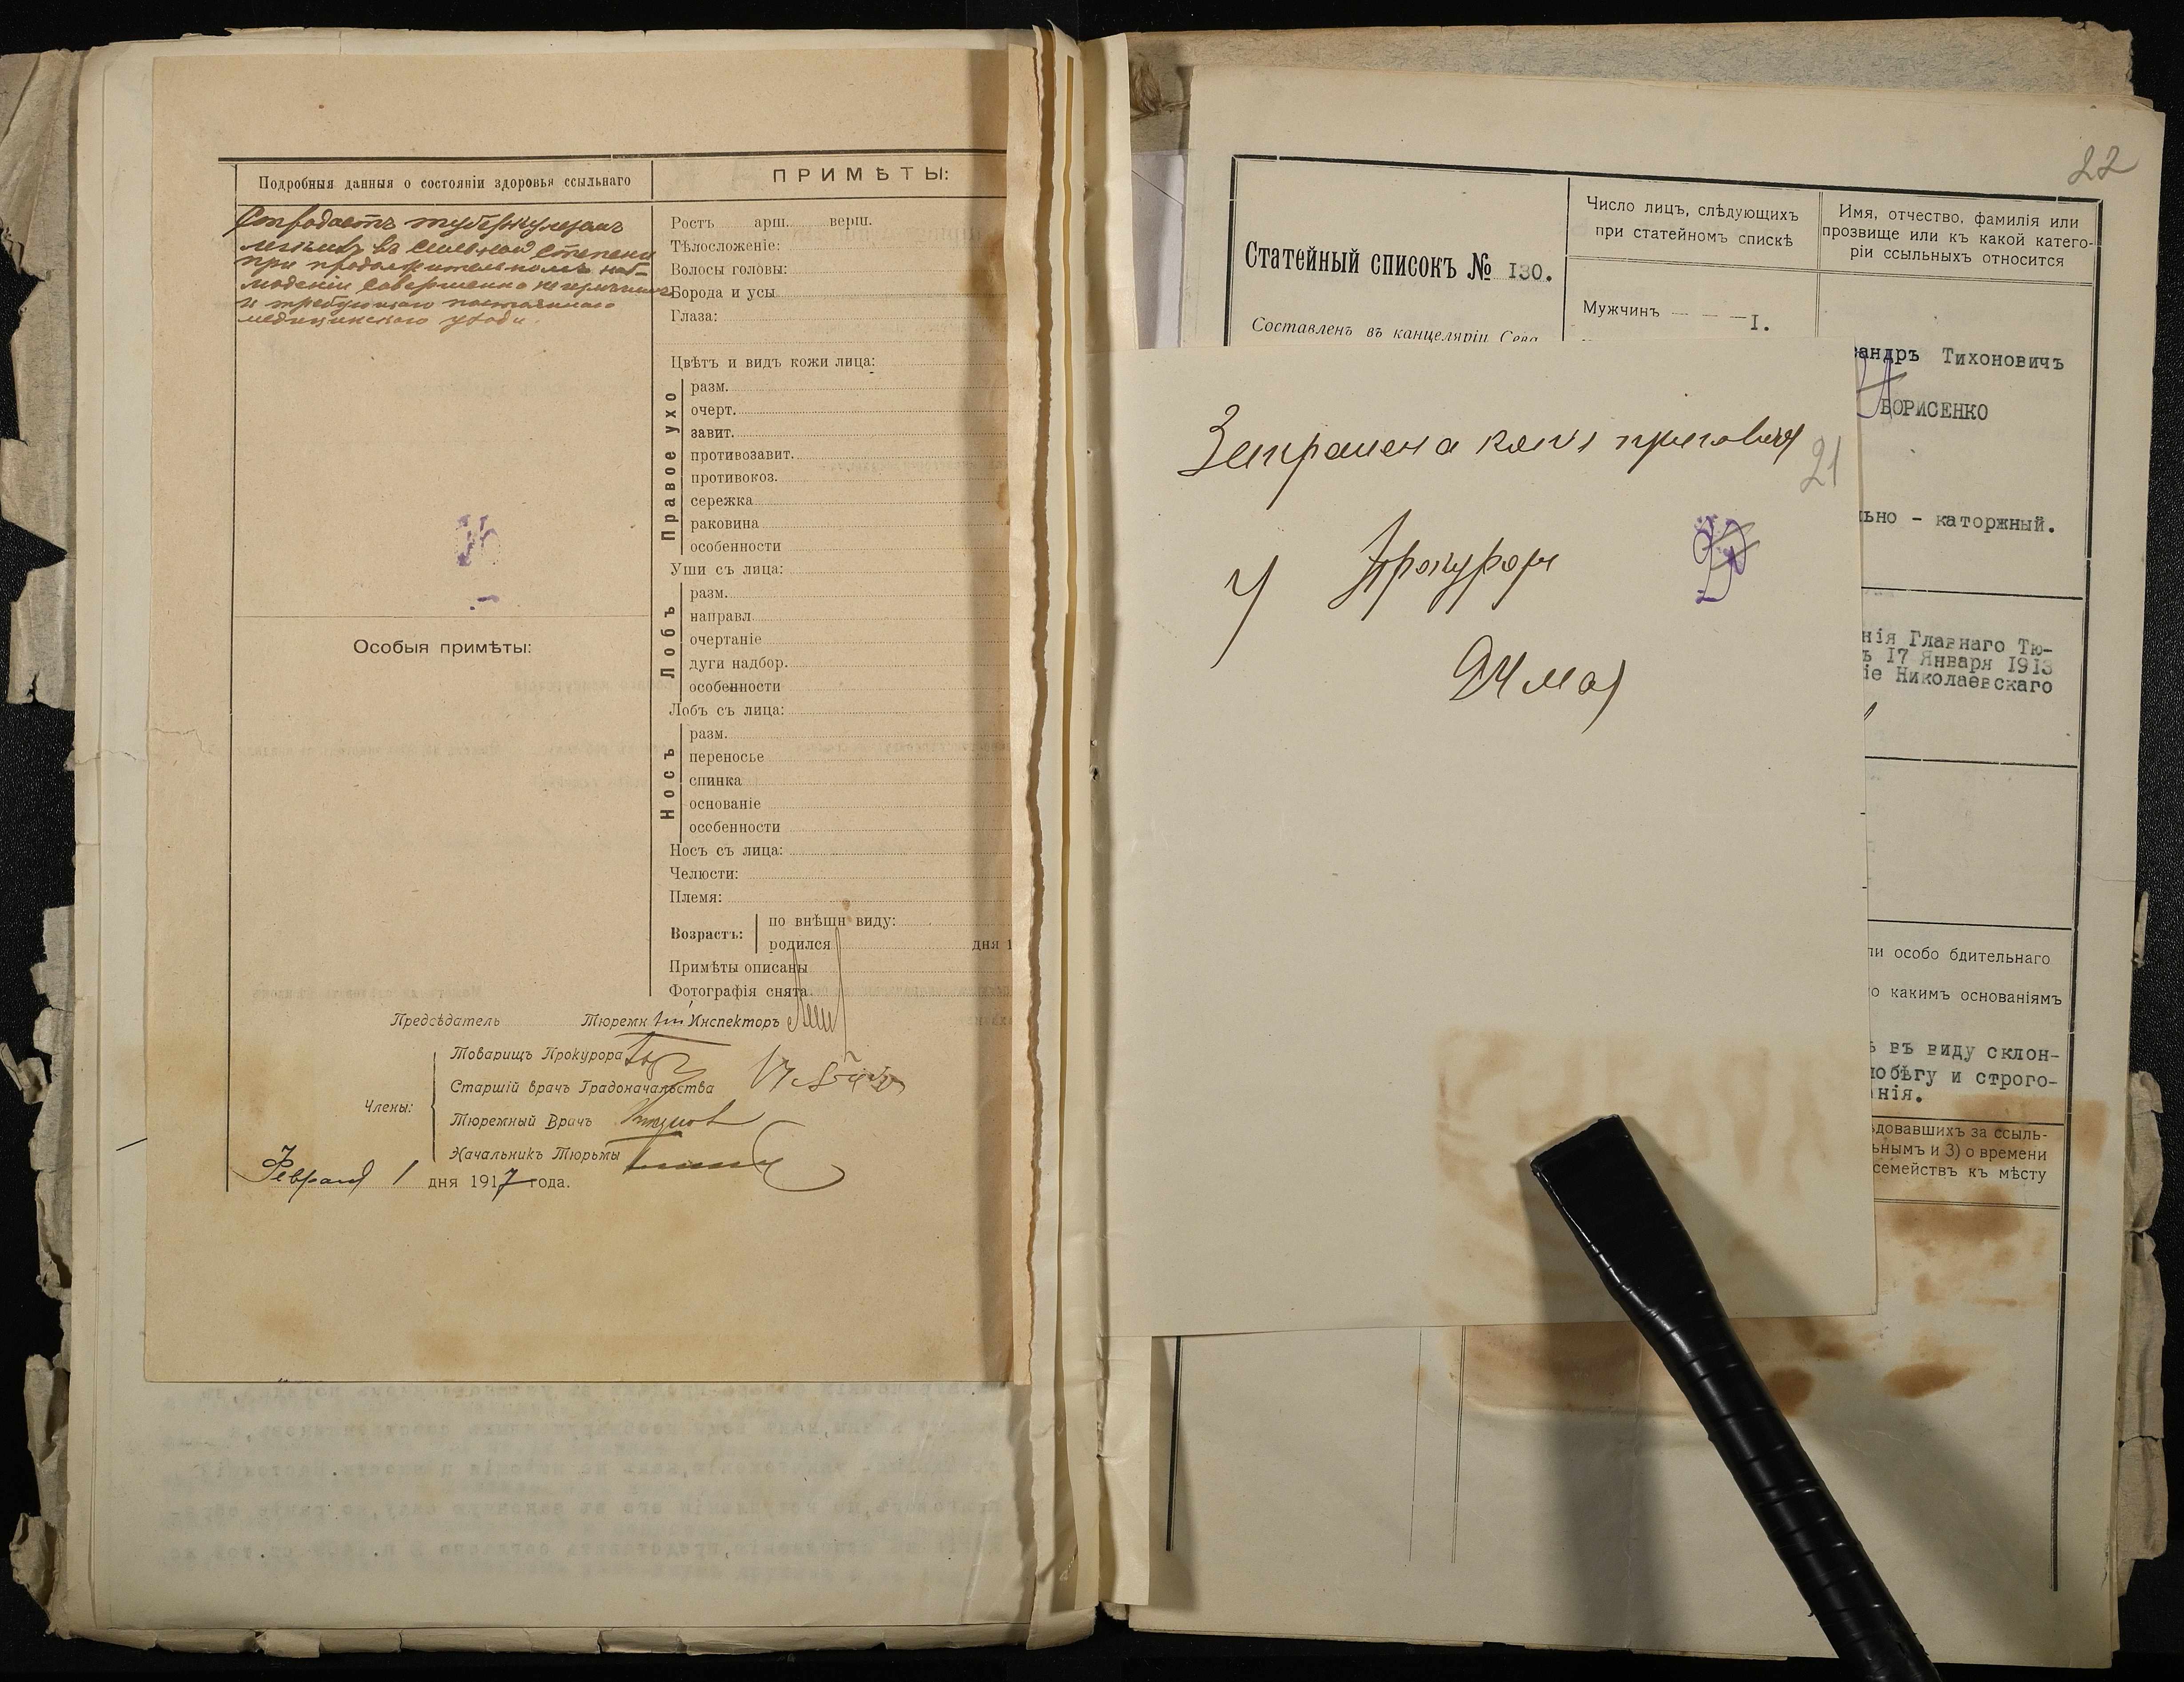 Подробныя данныя о состояніи здоровья ссыльнаго
Страдаетъ туберкулезомъ
легкихъ въ сильной степени
при продолжительномъ наб-
людении совершенно
и требующаго постояннаго
медицинскаго ухода.
Особыя примѣты:
ПРИМѢТЫ:
Ростъ арш. верш.
Тѣлосложеніе:
Волосы головы:
Борода и усы
Глаза:
Цвѣтъ и видъ кожи лица:
Правое ухо
разм.
очерт.
завит.
противозавит.
противокоз.
сережка
раковина
особенности
Уши съ лица:
Лобъ
разм.
направл.
очертаніе
дуги надбор.
особенности
Лобъ съ лица:
Носъ
разм.
переносье
спинка
основаніе
особенности
Носъ съ лица:
Челюсти:
Племя:
Возрастъ:
по внѣшн виду:
родился дня 1
Примѣты описаны
Фотографія снята
Предсѣдатель Тюремн Инспекторъ
Члены:
Товарищъ Прокурора
Старшій врачъ Градоначальства
Тюремный Врачъ
Начальникъ Тюрьмы
Февраля 1 дня 1917 года.
22
Статейный списокъ № 130.
Составленъ въ канцеляріи Сева
Число лицъ, слѣдующихъ
при статейномъ спискѣ
Мужчинъ — — — 1.
Имя, отчество, фамилія или
прозвище или къ какой катего-
ріи ссыльныхъ относится
сандръ Тихоновичъ
БОРИСЕНКО
льно - каторжный.
нія Главнаго Тю-
ъ 17 Января 1913
іе Николаевскаго
ли особо бдительнаго
о какимъ основаніямъ
ъ въ виду склон-
побѣгу и строго-
нія.
ѣдовавшихъ за ссыль-
ьнымъ и 3) о времени
семействъ къ мѣсту
Запрошена копія приговора
21
у Прокурора
24 мая